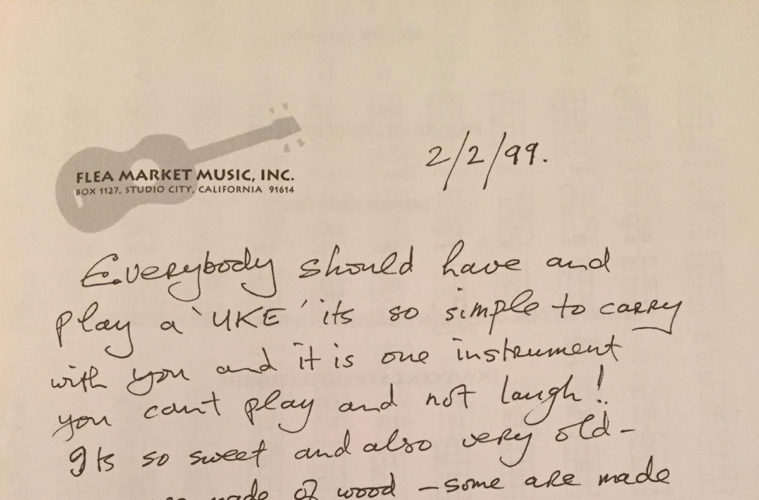 FLEA MARKET MUSIC, INC.
BOX 1127, STUDIO CITY, CALIFORNIA 91614
2/2/99.
Everybody should have and
play a 'UKE' its so simple to carry
with you and it is one instrument
you cant play and not laugh!
Its so sweet and also very old-
made of wood - some are made